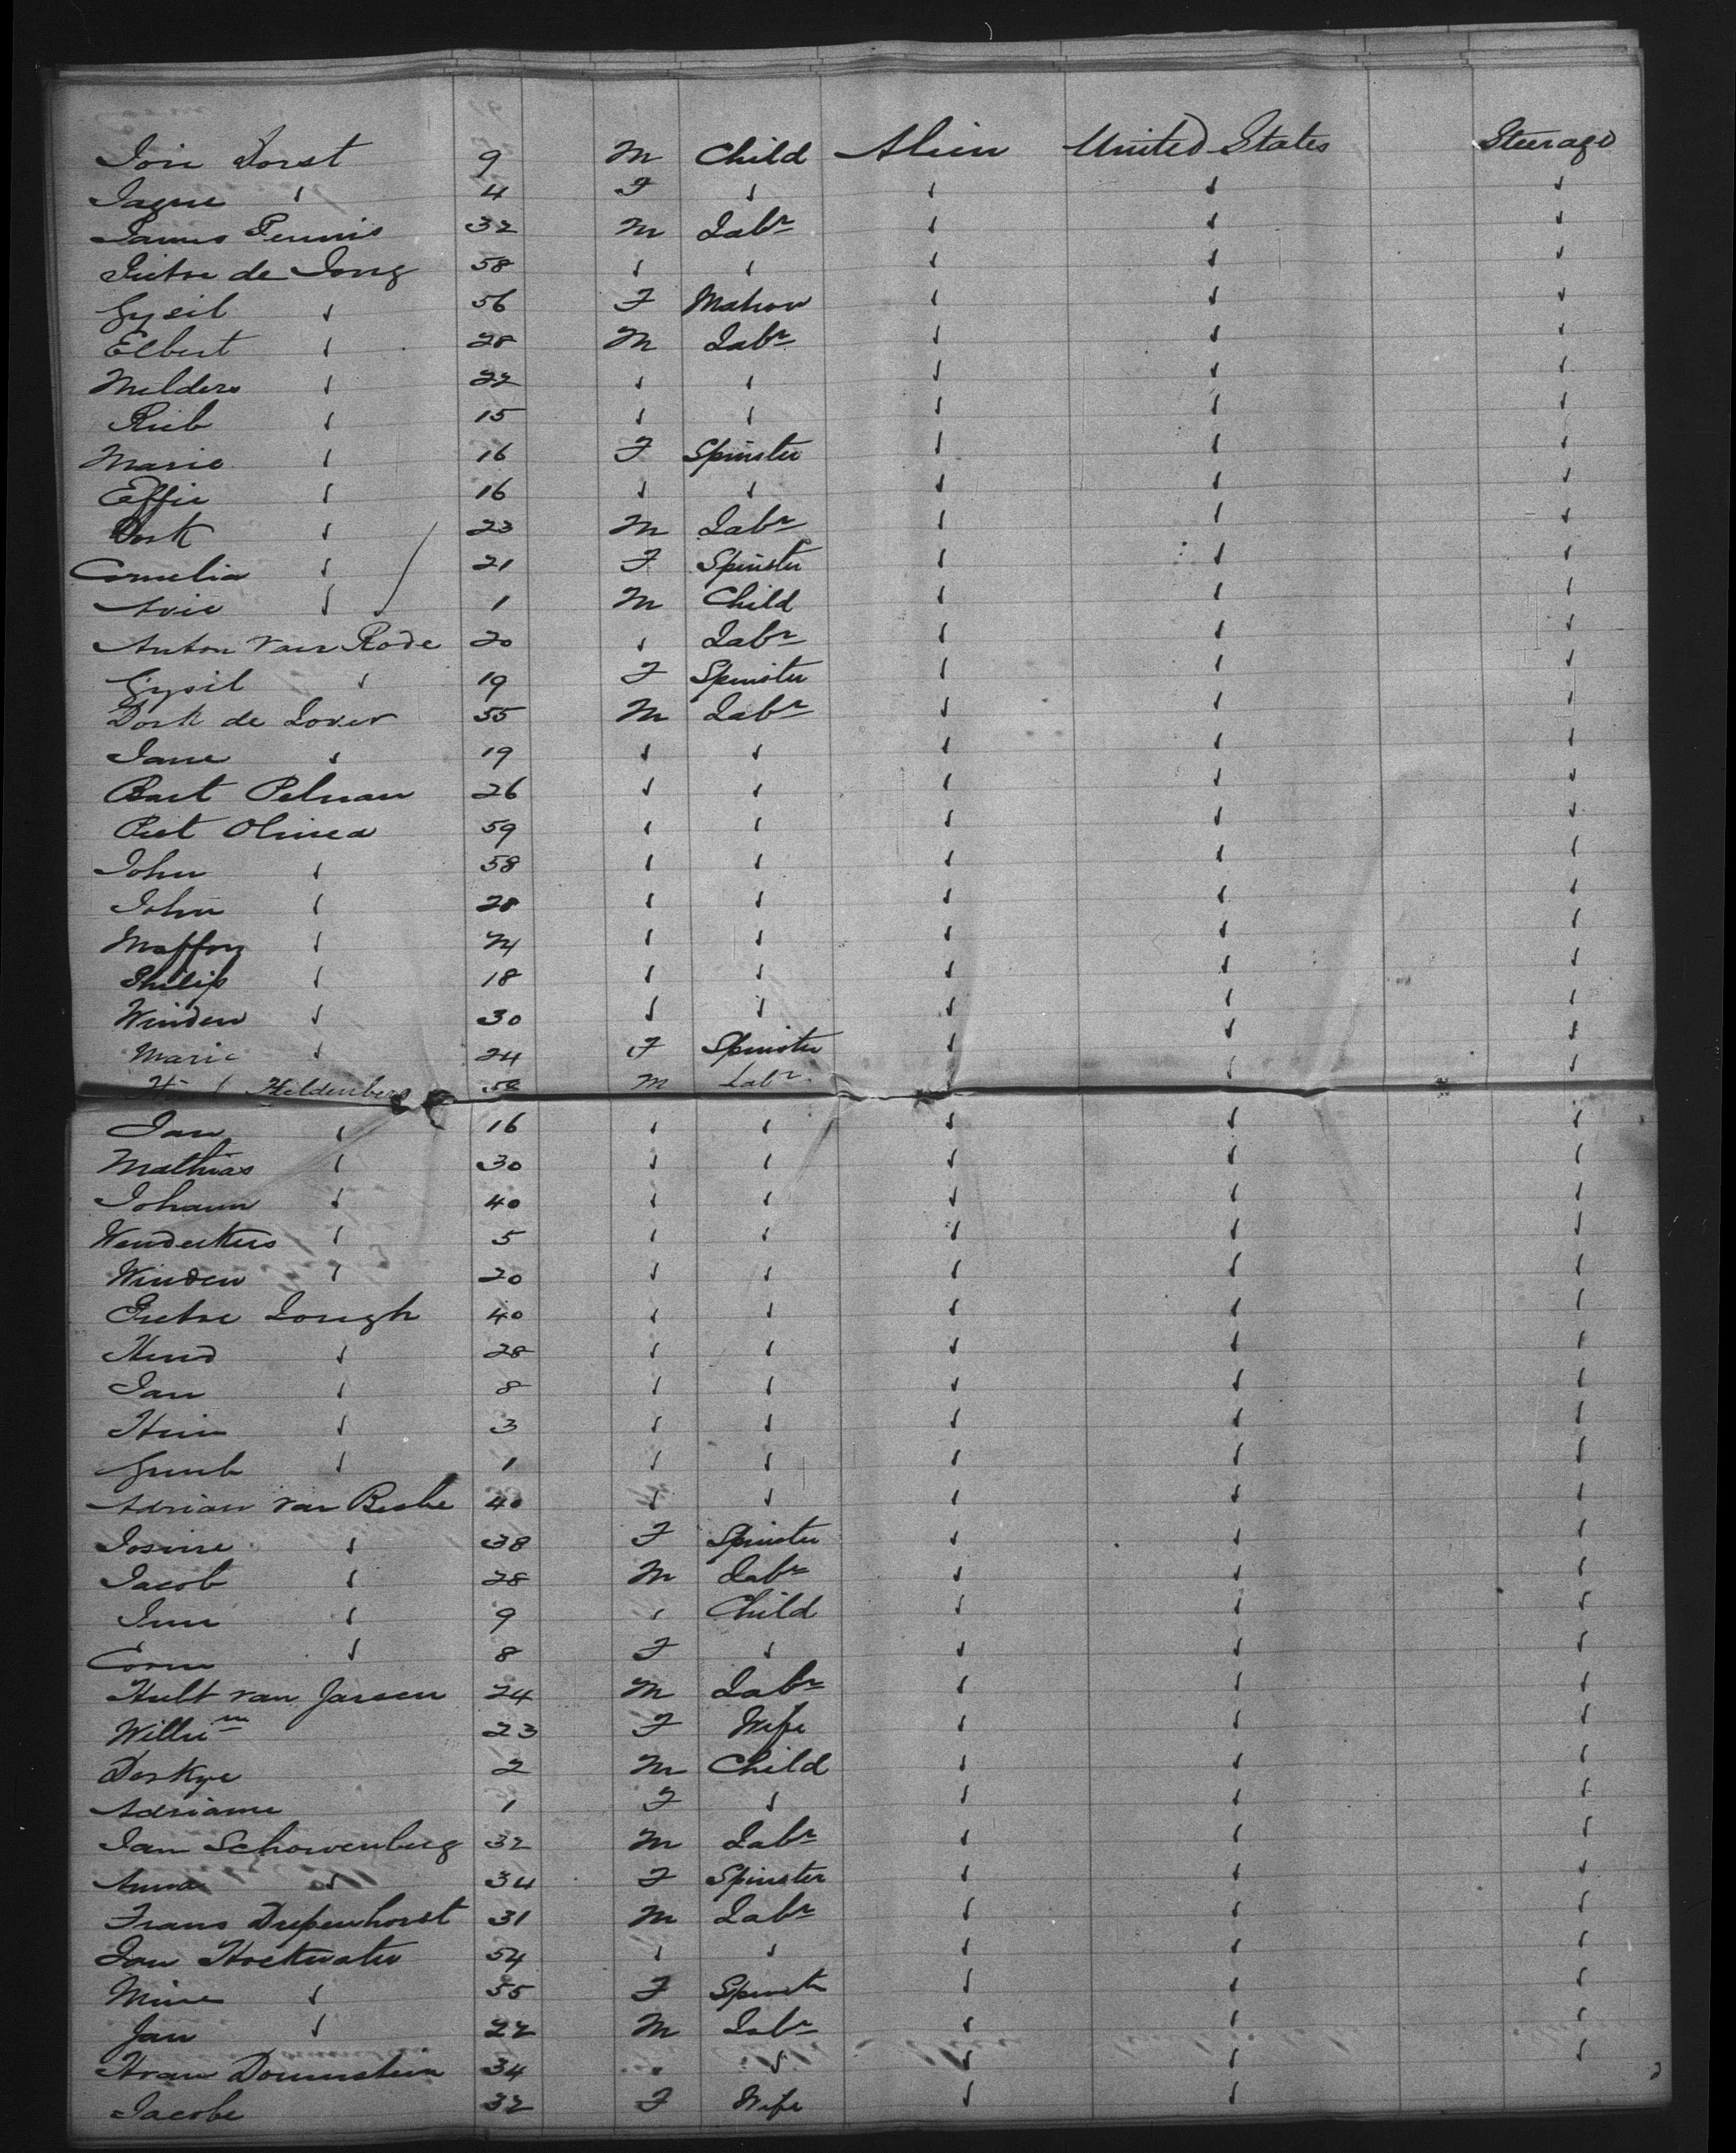 Jori Dorst 9 M Child Alien United States Steerage
Jagne ✓ 4 F ✓ ✓ ✓ ✓
James Pennis 32 M Labr ✓ ✓ ✓
Pietre de Jong 58 ✓ ✓ ✓ ✓ ✓
Gysil ✓ 56 F Matron ✓ ✓ ✓
Elbert ✓ 28 M Labr ✓ ✓ ✓
Melders ✓ 22 ✓ ✓ ✓ ✓ ✓
Rieb ✓ 15 ✓ ✓ ✓ ✓ ✓
Marie ✓ 16 F Spinster ✓ ✓ ✓
Effie ✓ 16 ✓ ✓ ✓ ✓ ✓
Dork ✓ 23 M Labr ✓ ✓ ✓
Cornelia ✓ 21 F Spinster ✓ ✓ ✓
Arie ✓ 1 M Child ✓ ✓ ✓
Anton van Rode 20 ✓ Labr ✓ ✓ ✓
Gysil ✓ 19 F Spinster ✓ ✓ ✓
Dork de Lover 55 M Labr ✓ ✓ ✓
Jane ✓ 19 ✓ ✓ ✓ ✓ ✓
Bart Pelman 26 ✓ ✓ ✓ ✓ ✓
Piet Olinea 59 ✓ ✓ ✓ ✓ ✓
John ✓ 58 ✓ ✓ ✓ ✓ ✓
John ✓ 28 ✓ ✓ ✓ ✓ ✓
Maffon ✓ ✓ ✓ ✓ ✓ ✓
Philip ✓ 18 ✓ ✓ ✓ ✓ ✓
Winden ✓ 30 ✓ ✓ ✓ ✓ ✓
Marie ✓ 24 F Spinster ✓ ✓ ✓
Heldenberg M Labr ✓ ✓ ✓
Jan ✓ 16 ✓ ✓ ✓ ✓ ✓
Mathias ✓ 30 ✓ ✓ ✓ ✓ ✓
Johann ✓ 40 ✓ ✓ ✓ ✓ ✓
Wendeters ✓ 5 ✓ ✓ ✓ ✓ ✓
Winden ✓ 20 ✓ ✓ ✓ ✓ ✓
Pietre Lough 40 ✓ ✓ ✓ ✓ ✓
Hend ✓ 28 ✓ ✓ ✓ ✓ ✓
Jan ✓ 8 ✓ ✓ ✓ ✓ ✓
Hein ✓ 3 ✓ ✓ ✓ ✓ ✓
✓ 1 ✓ ✓ ✓ ✓ ✓
Adrian van Beshe 40 ✓ ✓ ✓ ✓ ✓
Josine ✓ 38 F Spinster ✓ ✓ ✓
Jacob ✓ 28 M Labr ✓ ✓ ✓
✓ 9 ✓ Child ✓ ✓ ✓
Corn ✓ 8 F ✓ ✓ ✓ ✓
Hult van Jansen 24 M Labr ✓ ✓ ✓
Williem 23 F Wife ✓ ✓ ✓
Dorkye 2 M Child ✓ ✓ ✓
Adrianne 1 F ✓ ✓ ✓ ✓
Jan Schowenberg 32 M Labr ✓ ✓ ✓
Anna ✓ 34 F Spinster ✓ ✓ ✓
Frans Diepenhorst 31 M Labr ✓ ✓ ✓
Jan Hoekwater 54 ✓ ✓ ✓ ✓ ✓
Mine ✓ 55 F Spinster ✓ ✓ ✓
Jan ✓ 22 M Labr ✓ ✓ ✓
Hran Dounstein 34 ✓ ✓ ✓ ✓ ✓
Jacobe 32 F Wife ✓ ✓